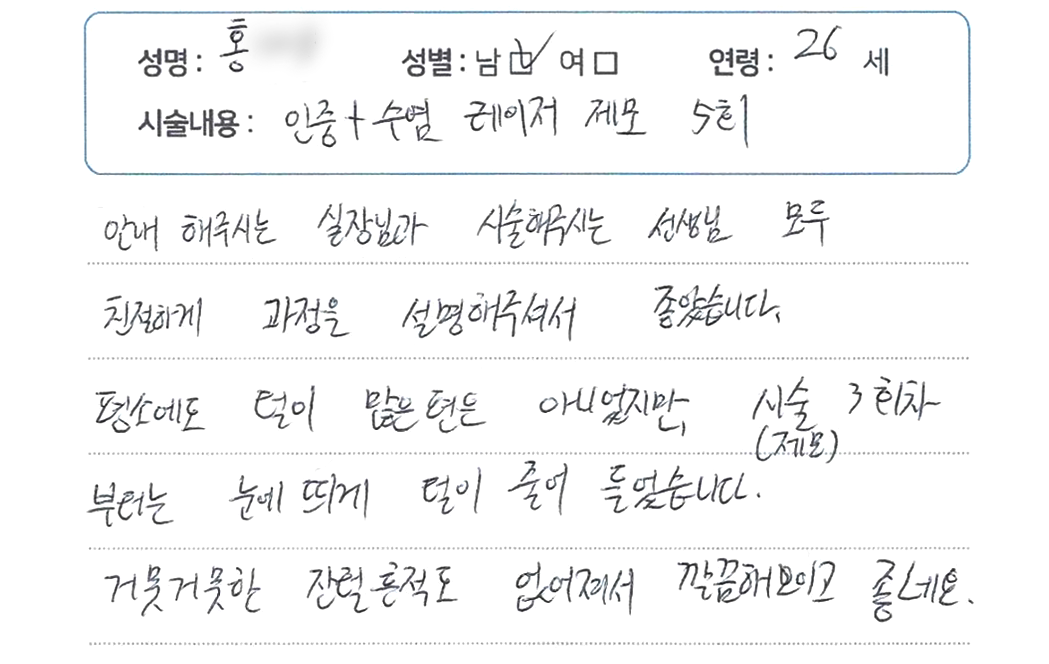 성명 : 홍 성별 : 남 ☑ 여 □ 연령 : 26 세
시술내용 : 인중 + 수염 레이저 제모 5회
안내 해주시는 실장님과 시술해주시는 선생님 모두
친절하게 과정을 설명해주셔서 좋았습니다.
평소에도 털이 많은편은 아니었지만, 시술 3회차
(제모)
부터는 눈에 띄게 털이 줄어 들었습니다.
거뭇거뭇한 잔털흔적도 없어져서 깔끔해보이고 좋네요.